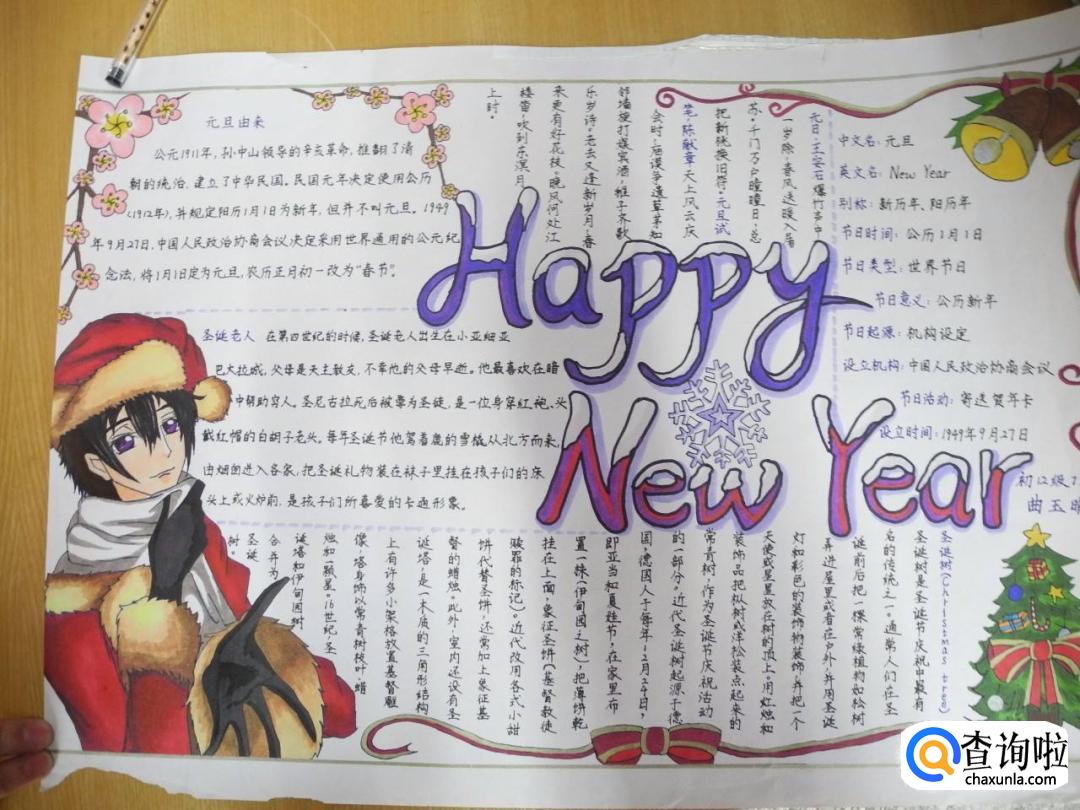 元旦由来
公元1911年，孙中山领导的辛亥革命，推翻了清
朝的统治，建立了中华民国。民国元年决定使用公历
(1912年)，并规定阳历1月1日为新年，但并不叫元旦。1949
年9月27日，中国人民政治协商会议决定采用世界通用的公元纪
念法，将1月1日定为元旦，农历正月初一改为“春节”。
元日·王安石 爆竹声中
一岁除，春风送暖入屠
苏。千门万户曈曈日，总
把新桃换旧符。元旦试
笔·陈献章 天上风云庆
会时，庙谟争遣草茅知
邻墙旋打娱宾酒，稚子齐歌
乐岁诗。老去又逢新岁月，春
来更有好花枝。晚风何处江
楼笛，吹到东溟月
上时。
中文名：元旦
英文名：New Year
别称：新历年、阳历年
节日时间：公历1月1日
节日类型：世界节日
节日意义：公历新年
节日起源：机构设定
设立机构：中国人民政治协商会议
节日活动：寄送贺年卡
设立时间：1949年9月27日
初12级1
曲玉
Happy
New Year
圣诞老人 在第四世纪的时候，圣诞老人出生在小亚细亚
巴大拉城，父母是天主教友，不幸他的父母早逝。他最喜欢在暗
中帮助穷人。圣尼古拉死后被尊为圣徒，是一位身穿红袍、头
戴红帽的白胡子老头。每年圣诞节他驾着鹿的雪橇从北方而来，
由烟囱进入各家，把圣诞礼物装在袜子里挂在孩子们的床
头上或火炉前，是孩子们所喜爱的卡通形象。
圣诞树(Christmas tree)
圣诞树是圣诞节庆祝中最有
名的传统之一。通常人们在圣
诞前后把一棵常绿植物如松树
弄进屋里或者在户外，并用圣诞
灯和彩色的装饰物装饰，并把一个
天使或星星放在树的顶上。用灯烛和
装饰品把枞树或洋松装点起来的
常青树，作为圣诞节庆祝活动
的一部分。近代圣诞树起源于德
国，德国人于每年12月24日，
即亚当和夏娃节，在家里布
置一株(伊甸园之树)，把薄饼乾
挂在上面，象征圣饼(基督教徒
赎罪的标记)。近代改用各式小甜
饼代替圣饼，还常加上象征基
督的蜡烛。此外，室内还设有圣
诞塔，是一木质的三角形结构
上有许多小架格放置基督雕
像，塔身饰以常青树枝叶、蜡
烛和一颗星。16世纪，圣
诞塔和伊甸园树
合并为
圣诞
树。
查询啦
chaxunla.com